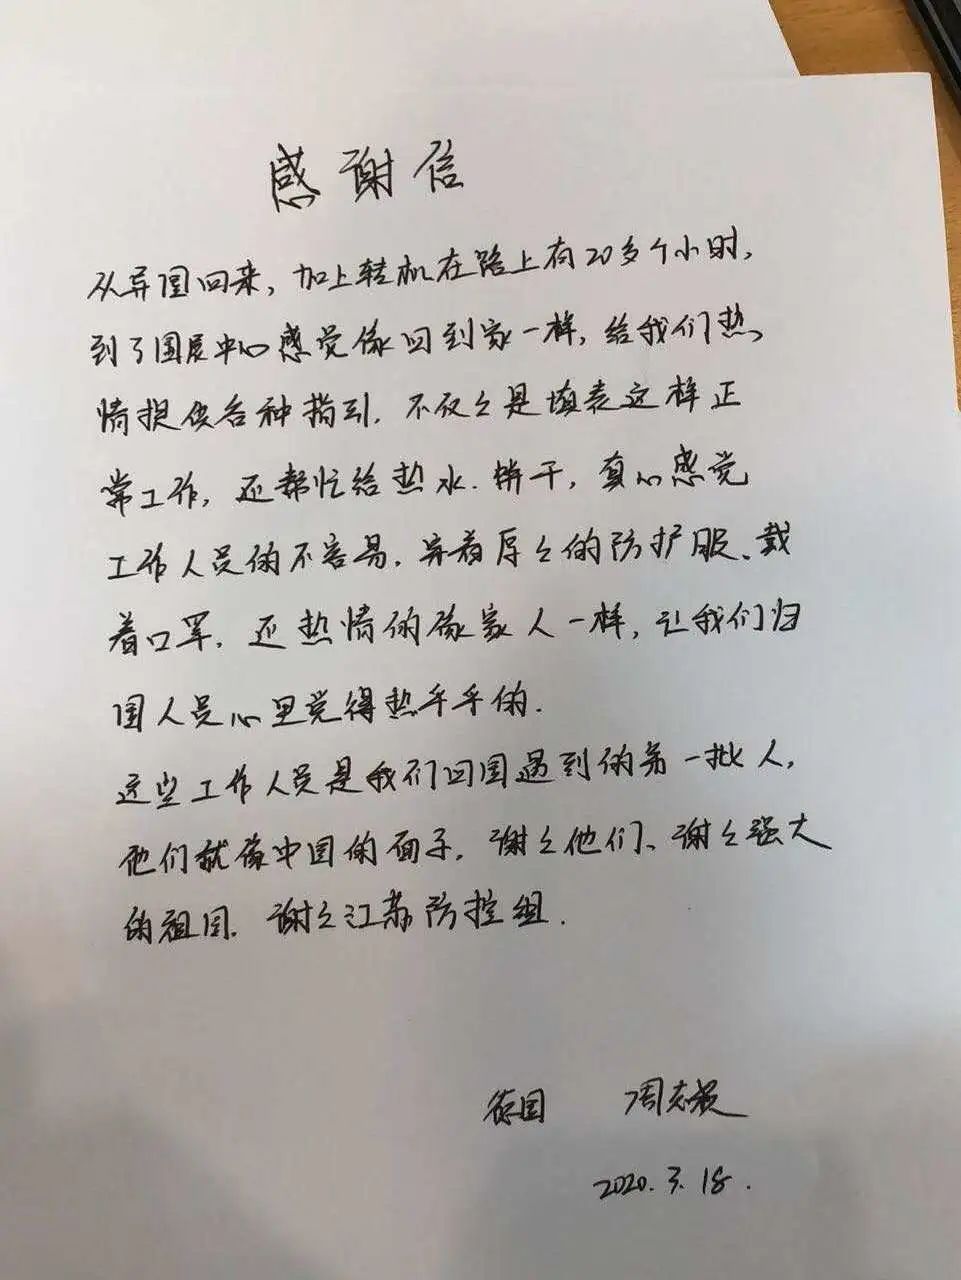 感谢信
从异国回来，加上转机在路上有20多个小时，
到了国展中心感觉像回到家一样，给我们热
情提供各种指引．不仅々是填表这样正
常工作，还帮忙给热水．饼干，真心感觉
工作人员的不容易．穿着厚々的防护服、戴
着口罩，还热情的像家人一样，让我们归
国人员心里觉得热乎乎的．
这些工作人员是我们回国遇到的第一批人，
他们就像中国的面子．谢々他们、谢々强大
的祖国．谢々江苏防控组．
德国 周志
2020.3.18.